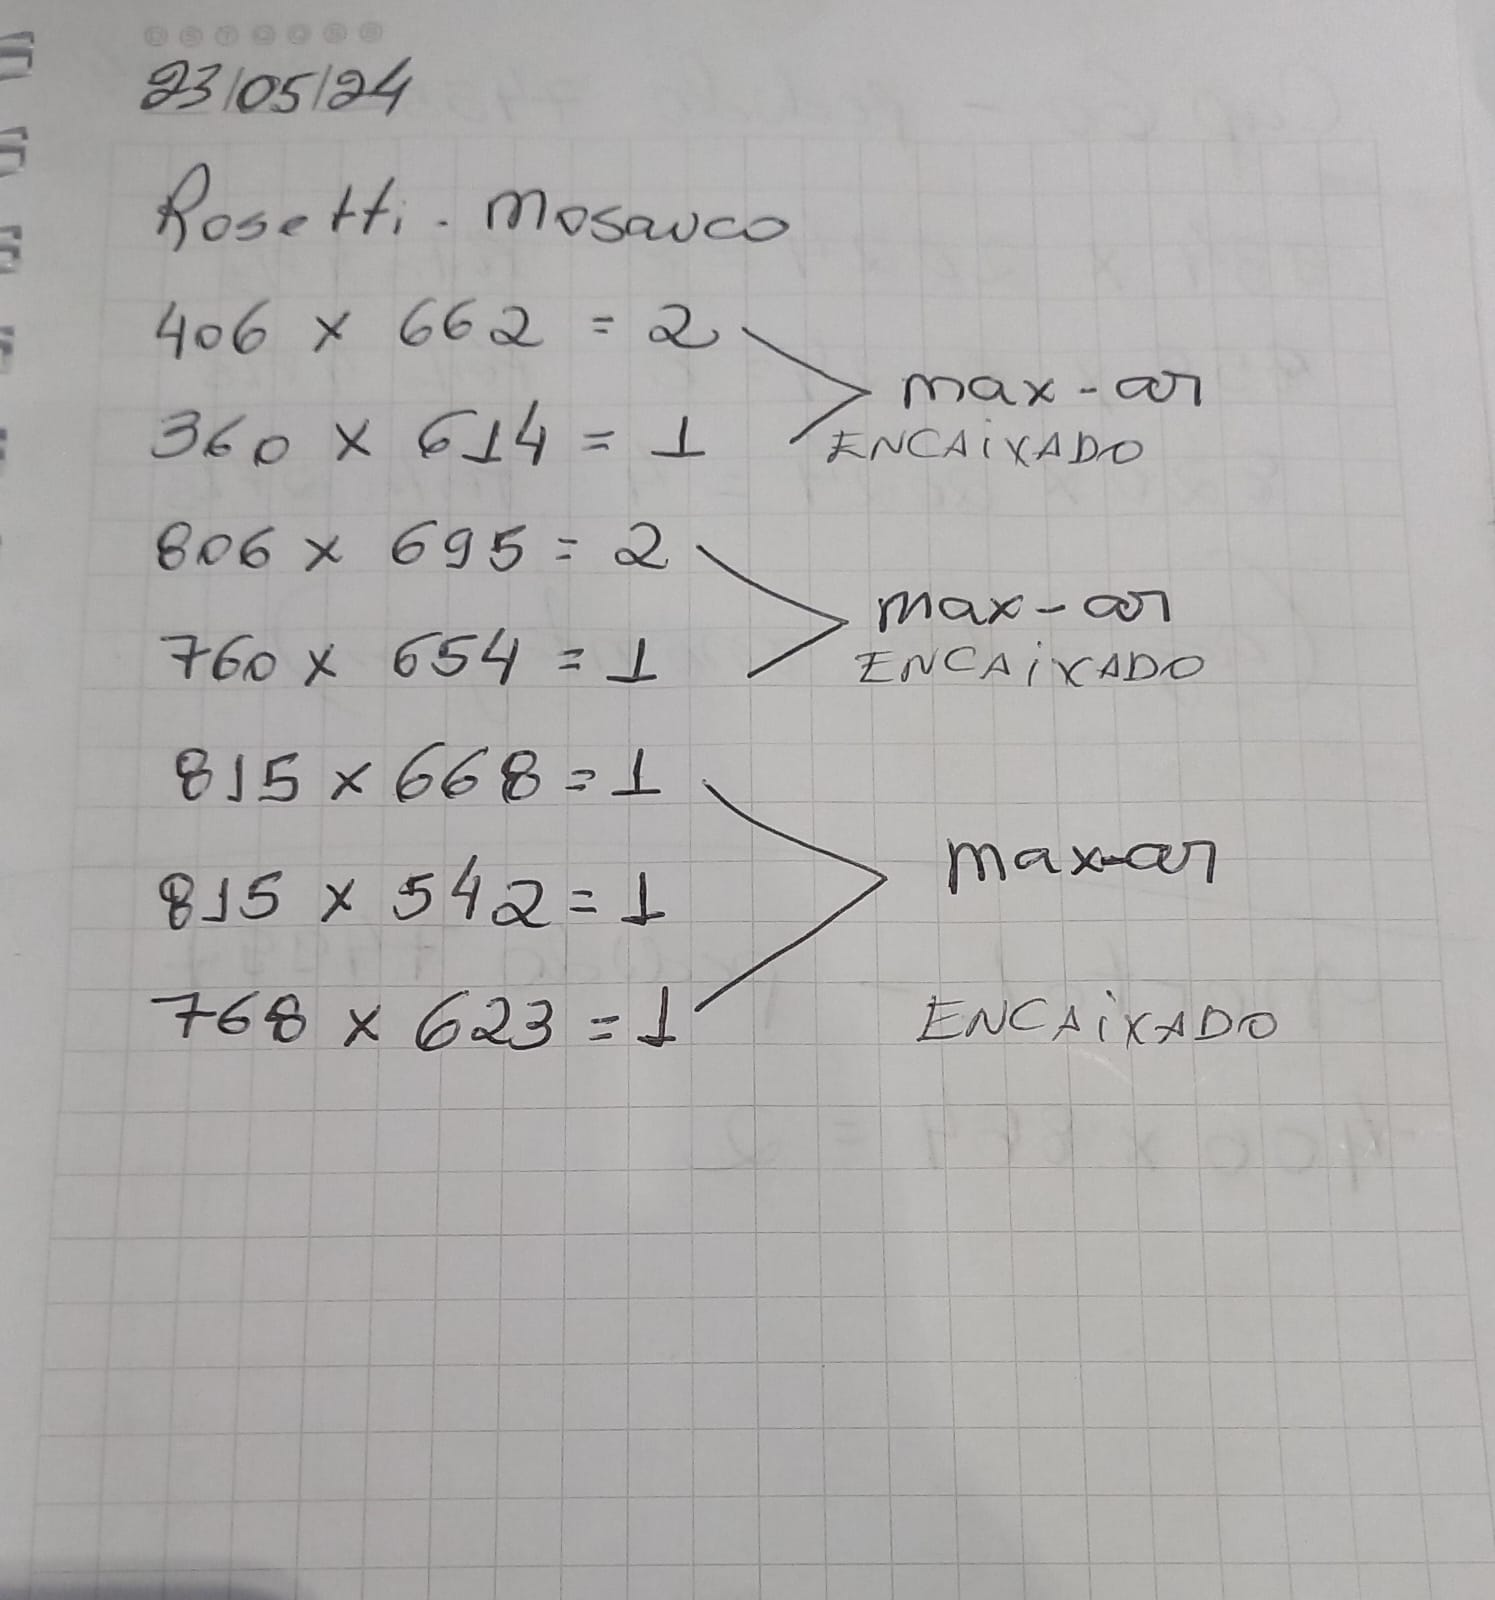 D S T Q Q S S
23/05/24
Rosetti. Mosauco
406 x 662 = 2
max-ar
360 x 614 = 1
ENCAiXADO
806 x 695 = 2
max-ar
760 x 654 = 1
ENCAiXADO
815 x 668 = 1
max-ar
815 x 542 = 1
768 x 623 = 1
ENCAiXADO